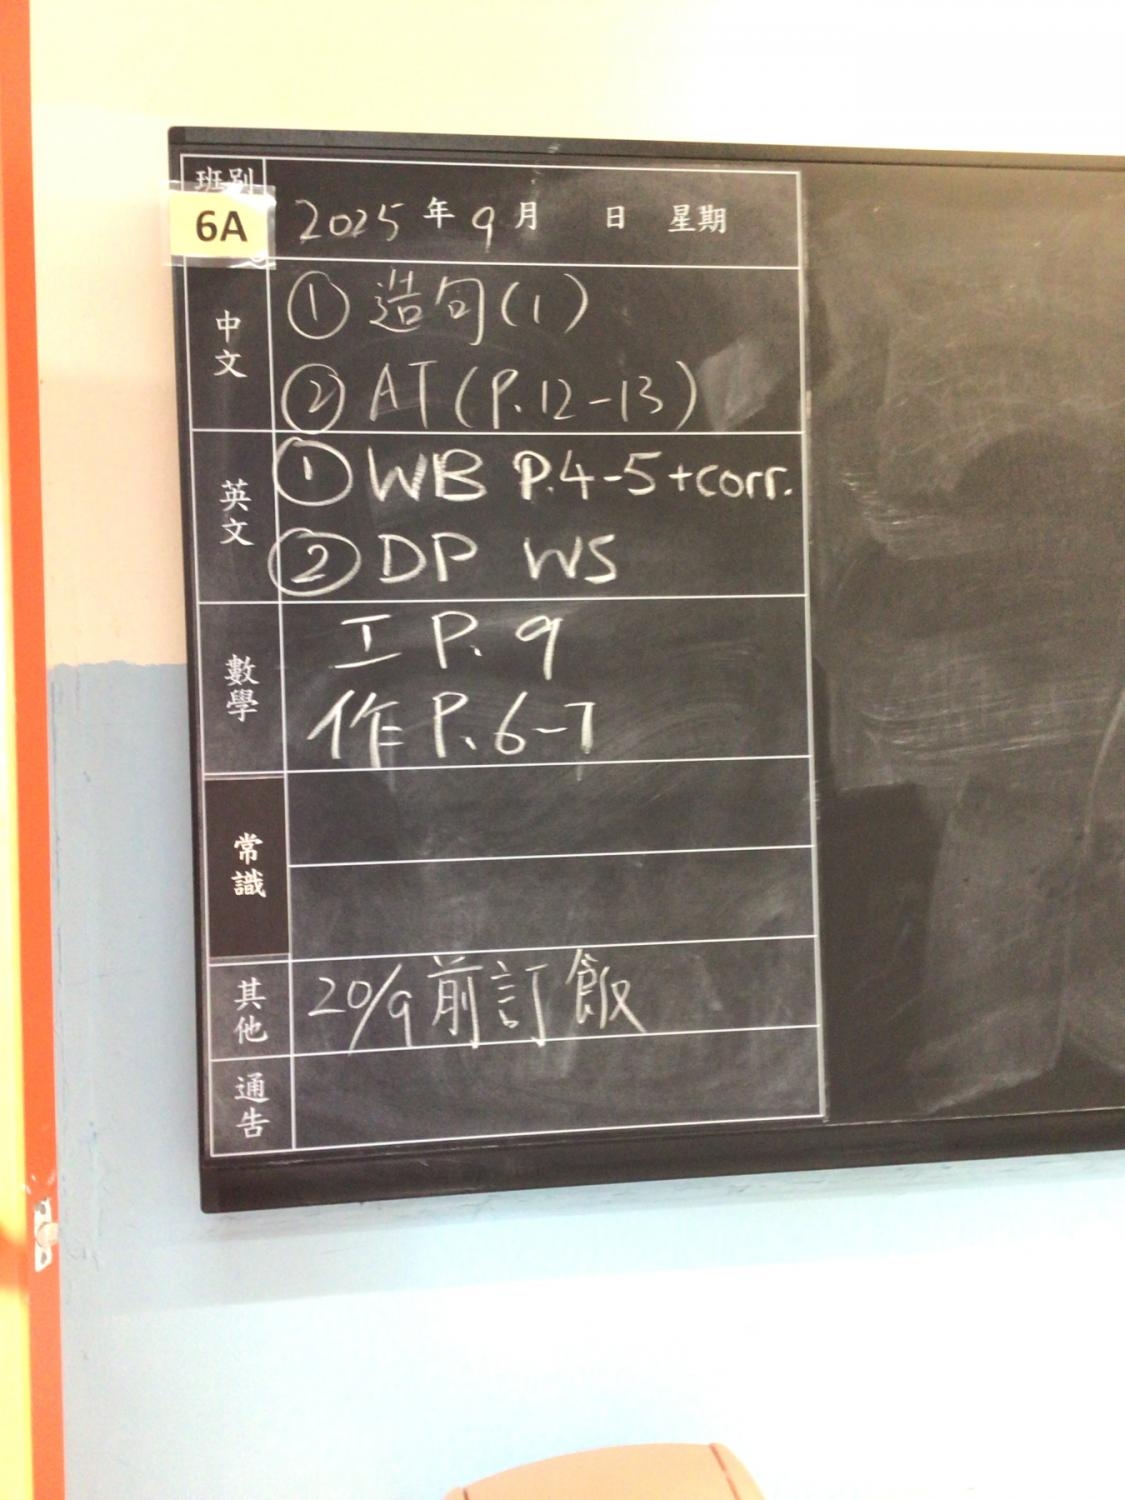 班別
6A
2025 年 9 月 日 星期
中文
① 造句(1)
② AT (P.12-13)
英文
① WB P.4-5+corr.
② DP WS
數學
工 P. 9
作 P. 6-7
常識
其他
20/9 前訂飯
通告